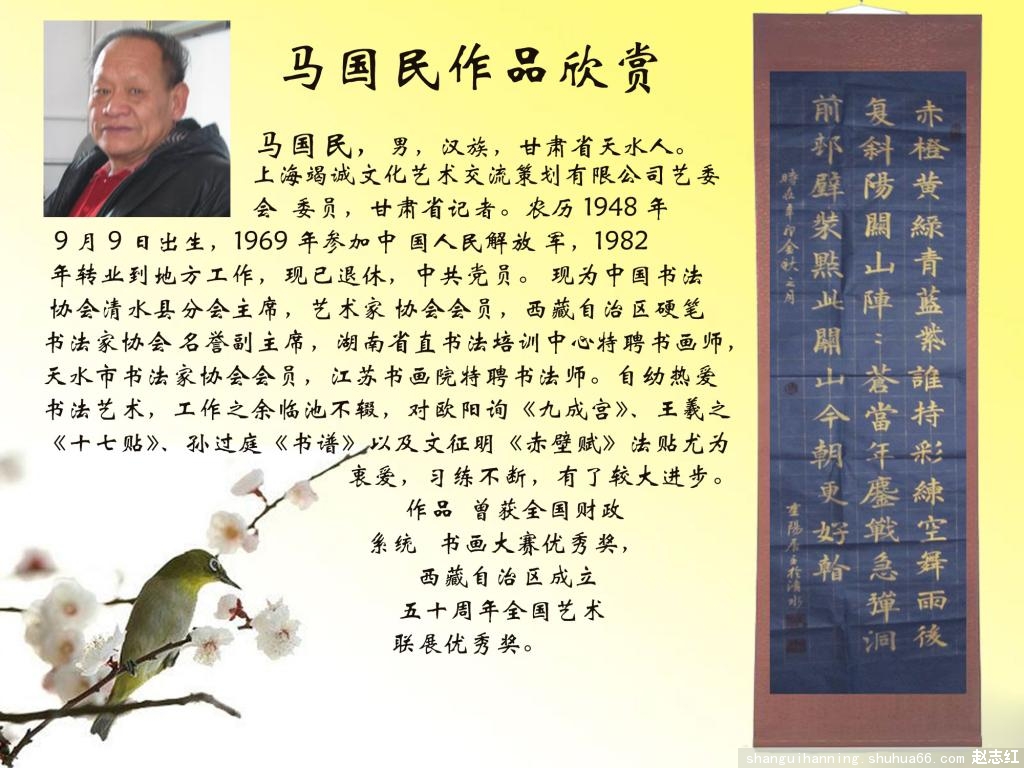 马国民作品欣赏
马国民，男，汉族，甘肃省天水人。
上海竭诚文化艺术交流策划有限公司艺委
会 委员，甘肃省记者。农历 1948 年
9 月 9 日出生，1969 年参加中 国人民解放 军，1982
年转业到地方工作，现已退休，中共党员。 现为中国书法
协会清水县分会主席，艺术家 协会会员，西藏自治区硬笔
书法家协会 名誉副主席，湖南省直书法培训中心特聘书画师，
天水市书法家协会会员，江苏书画院特聘书法师。自幼热爱
书法艺术，工作之余临池不辍，对欧阳询《九成宫》、王羲之
《十七贴》、孙过庭《书谱》以及文征明《赤壁赋》法贴尤为
衷爱，习练不断，有了较大进步。
作品 曾获全国财政
系统 书画大赛优秀奖，
西藏自治区成立
五十周年全国艺术
联展优秀奖。
赤橙黄綠青藍紫誰持彩練空舞雨後
复斜陽關山陣〻蒼當年鏖戰急彈洞
前邨壁裝點此關山今朝更好看
時在辛卯金秋之月
shanguihanning.shuhua66.com 赵志红